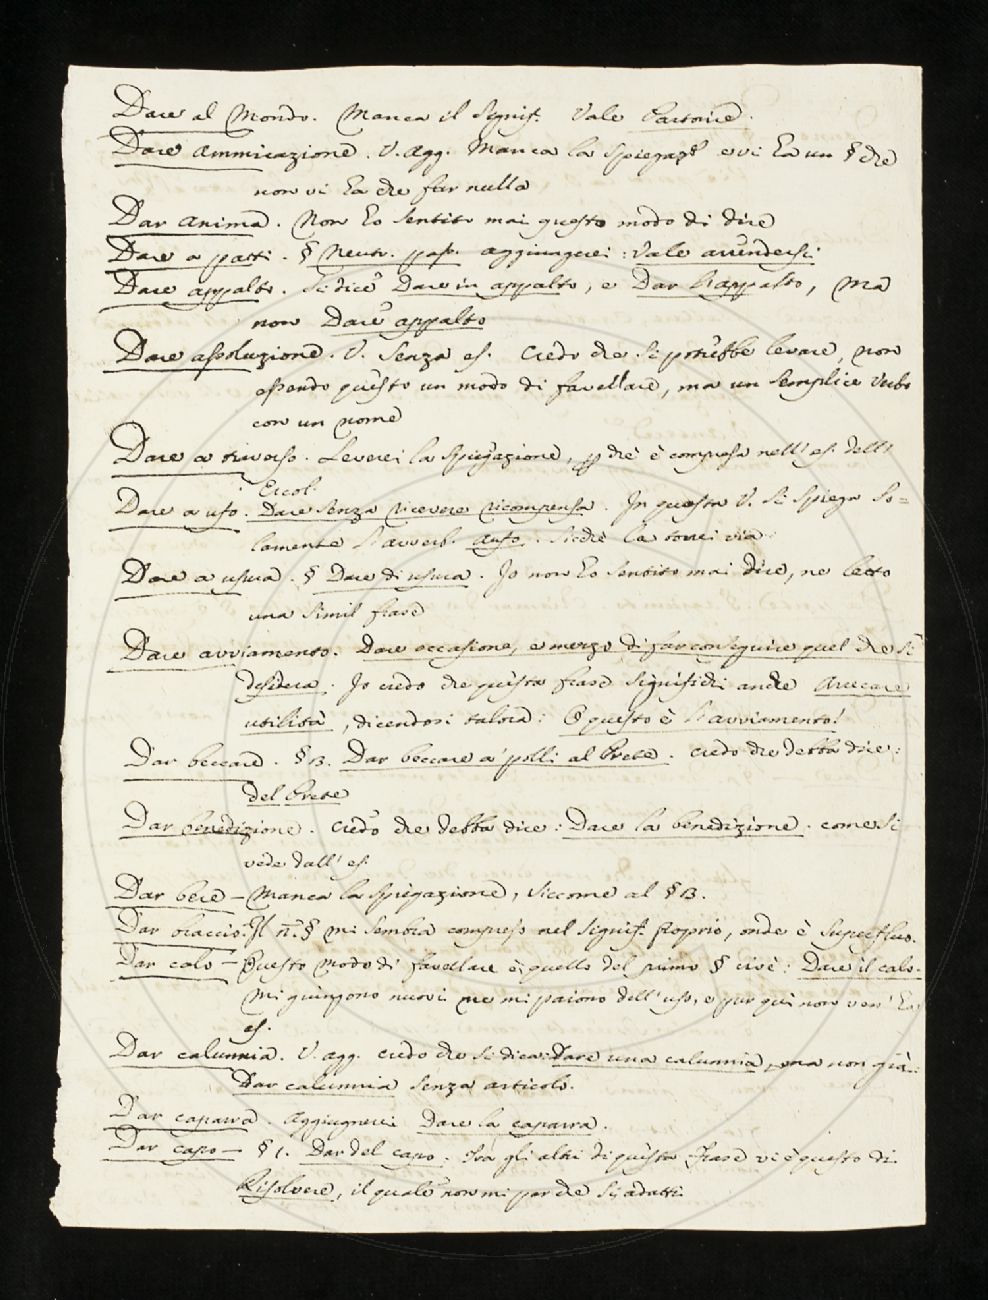 Dare al Mondo. Manca il Signif. Vale Partorire.
Dare ammirazione. V. Agg. Manca la Spiegaz.e e vi ha un § che
non vi ha che far nulla
Dar anima. Non ho sentito mai questo modo di dire
Dare a patti. § Neutr. pass. aggiungerei: Vale arrendersi
Dare appalto. Si dice Dare in appalto, e Dar l'appalto, ma
non Dare appalto
Dare assoluzione. V. Senza es. Credo che si potrebbe levare, non
essendo questo un modo di favellare, ma un semplice verbo
con un nome
Dare a traverso. Leverei la Spiegazione, che è compresa nell' es. dell'
Ercol.
Dare a ufo. Dare senza ricevere ricompensa. In questa V. si spiega so=
lamente l'avverb. aufo. Sicchè la torrei via.
Dare a usura. § Dare di usura. Io non ho sentito mai dire, ne letto
una simil frase
Dare avviamento. Dare occasione, e mezzo di far conseguire quel che si
desidera. Io credo che questa frase significhi anche Arrecare
utilità, dicendosi talora: O questo è l'avviamento!
Dar beccare. § B. Dar beccare a' polli al Prete. Credo che debba dire:
del Prete
Dar benedizione. Credo che debba dire: Dare la benedizione. come si
vede dall' es.
Dar bere – Manca la Spiegazione, siccome al § B.
Dar braccio. Il n.° § mi sembra compreso nel signif. Proprio, onde è superfluo.
Dar calo – Questo modo di favellare è quello del primo § cioè: Dare il calo.
Mi giungono nuovi ne mi paiono dell' uso, e pur qui non ven' ha
es.
Dar calunnia. V. agg. credo che si dica: Dare una calunnia, ma non già
Dar calunnia senza articolo.
Dar caparra. Aggiugnerei Dare la caparra.
Dar capo – § 1. Dar del capo. Tra gli altri di questa Frase vi è questo di
Risolvere, il quale non mi par che si adatti